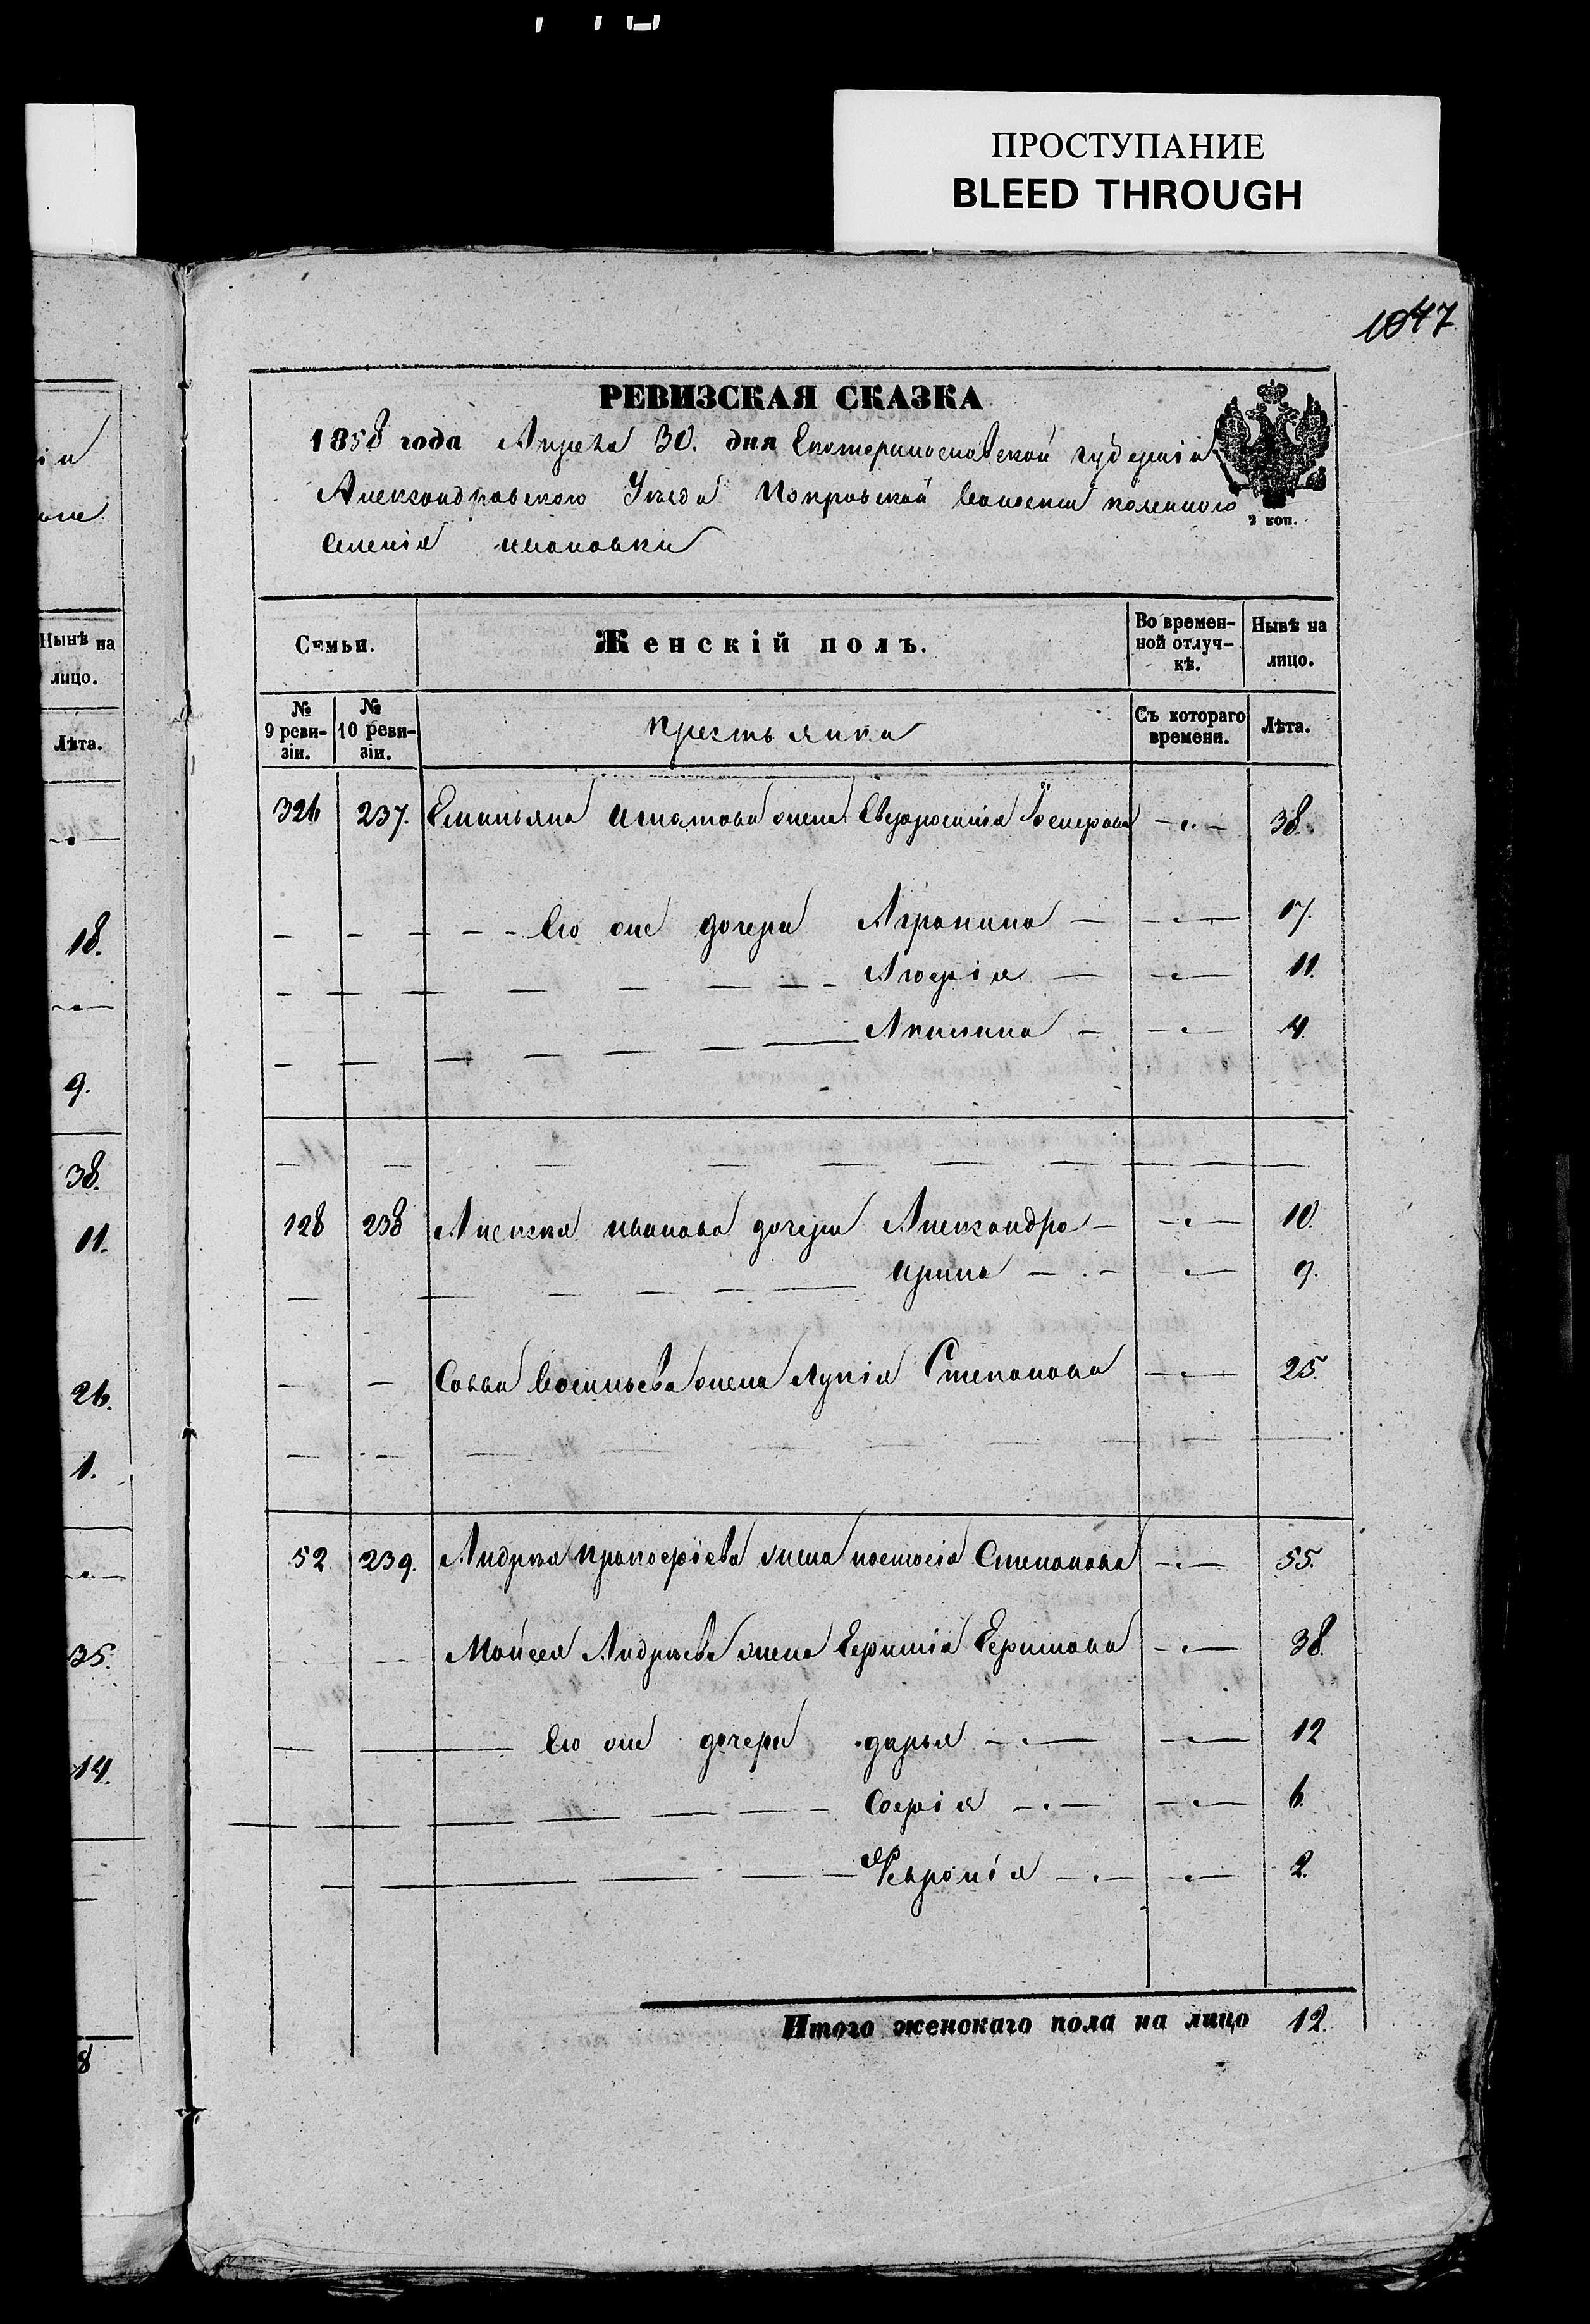 ПРОСТУПАНИЕ
BLEED THROUGH
1047
РЕВИЗСКАЯ СКАЗКА
1858 года Апреля 30. дня Екатеринославской губерніи
Александровского Уѣзда Покровской волости казенного
2 коп.
селенія ивановки
Семьи. Женскій полъ. Во времен-ной отлуч-кѣ. Нынѣ на лицо.
№ 9 реви-зіи. № 10 реви-зіи. крестьянка Съ котораго времени. Лѣта.
326 237. Емильяна игнатова жена Евфросинія 38.
Его же дочери Аграпина 17.
Агафія 11.
Акилина 4.
128 238 Алексея иванова дочери Александра 10.
ирина 9.
Савви Васильева жена лукія Степанова 25.
52 239. Андрея пракофіева жена настасія Степанова 55.
Мойсея Андрѣева жена Ефимова 38.
Его же дочери дарья 12
Софія 6.
Февронія 2.
Итого женскаго пола на лицо 12.
Нынѣ на
лицо.
Лѣта.
18.
9.
38.
11.
26.
1.
35.
14.
8